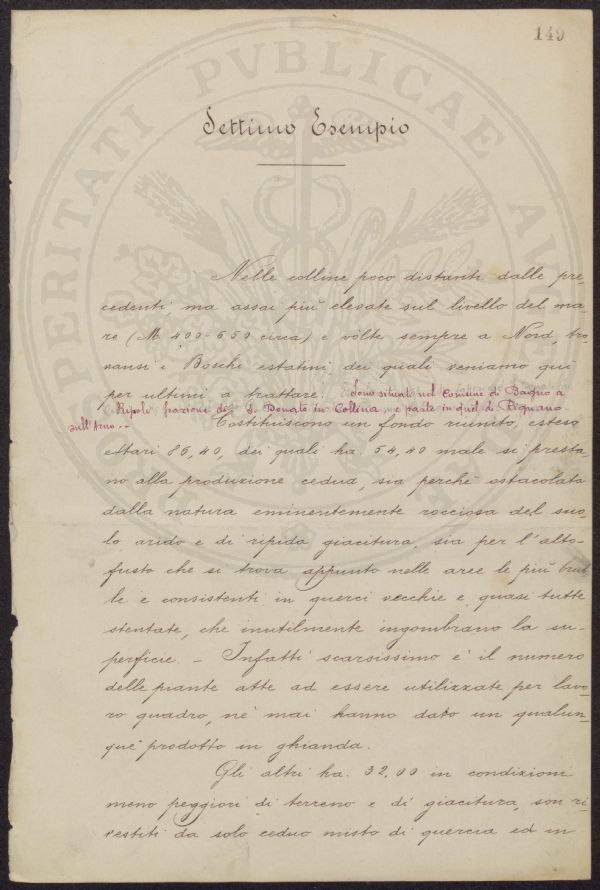 149
PROSPERITATI PVBLICAE AVGENDAE
Settimo Esempio
Nelle colline poco distanti dalle pre-
cedenti, ma assai più elevate sul livello del ma-
re (M. 400-650 circa) e vôlte sempre a Nord, tro-
vansi i Boschi estatini, dei quali veniamo qui
per ultimi a trattare. Sono situati nel Comune di Bagno a
Ripoli, frazione di S. Donato in Collina, e parte in quel di Rignano
sull'Arno.-
Costituiscono un fondo riunito, esteso
ettari 86,40, dei quali ha. 54,40 male si presta-
no alla produzione cedua, sia perchè ostacolata
dalla natura eminentemente rocciosa del suo-
lo arido e di ripida giacitura, sia per l'alto-
fusto che si trova appunto nelle aree le più brul-
le e consistenti in querci vecchie e quasi tutte
stentate, che inutilmente ingombrano la su-
perficie. - Infatti scarsissimo è il numero
delle piante atte ad essere utilizzate per lavo-
ro quadro, nè mai hanno dato un qualun-
què prodotto in ghianda.
Gli altri ha. 32,00 in condizioni
meno peggiori di terreno e di giacitura, son ri-
vestiti da solo ceduo misto di quercia ed in